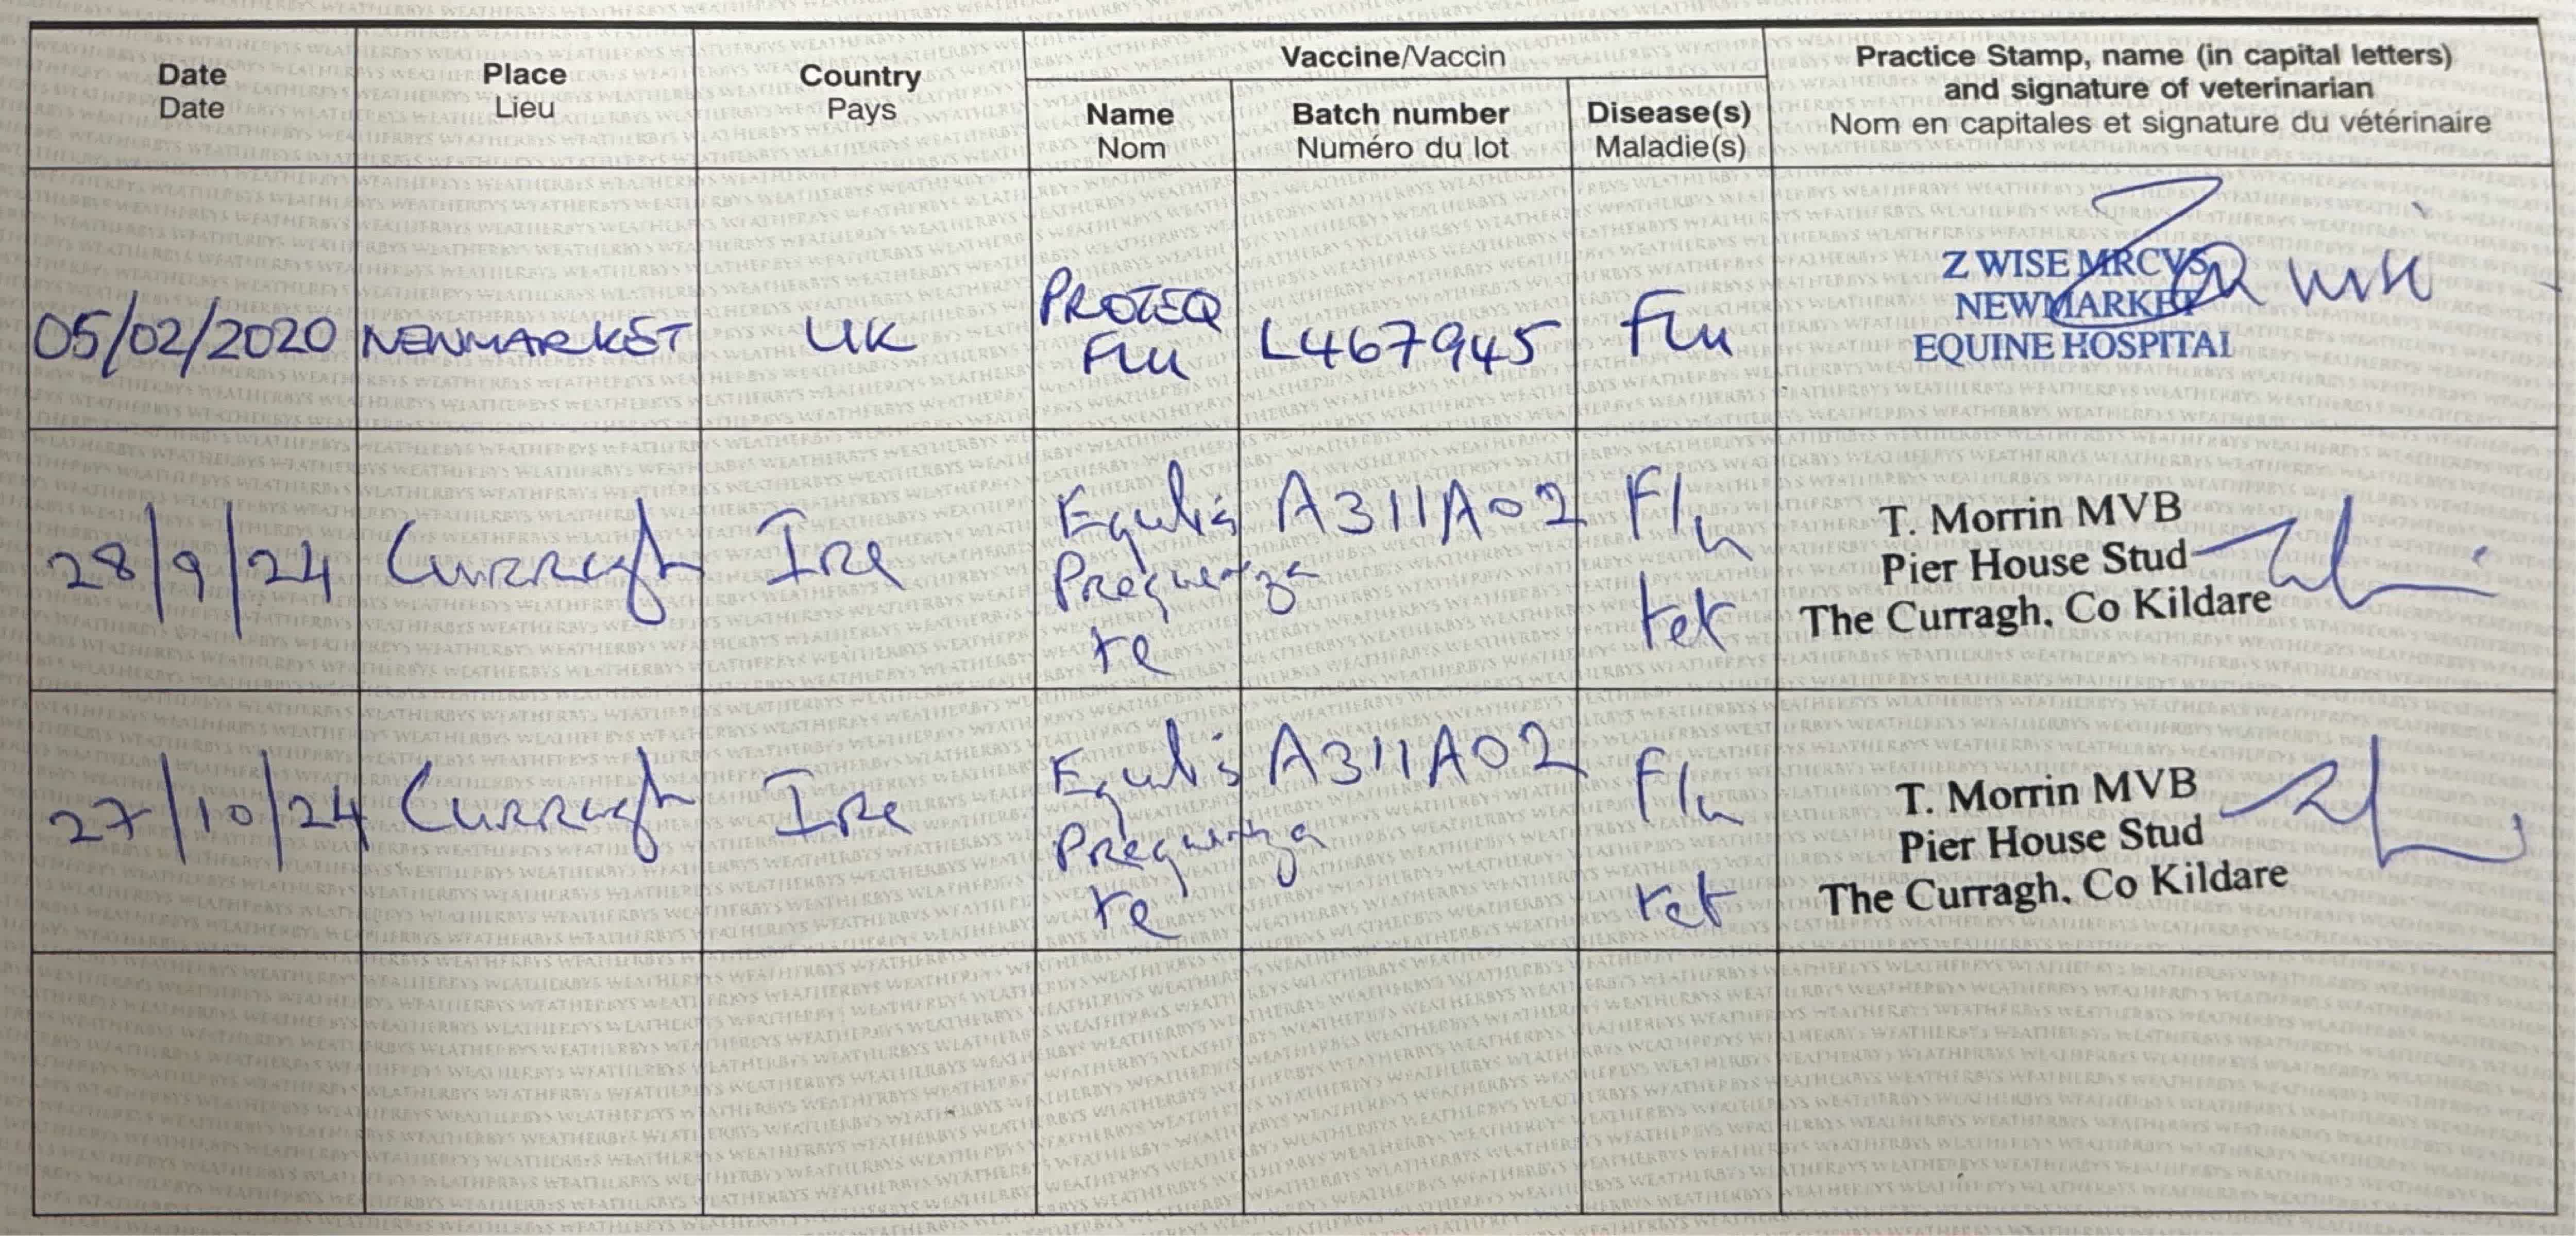 Date
Date
Place
Lieu
Country
Pays
Vaccine/Vaccin
Name
Nom
Batch number
Numéro du lot
Disease(s)
Maladie(s)
Practice Stamp, name (in capital letters)
and signature of veterinarian
Nom en capitales et signature du vétérinaire
05/02/2020
NEWMARKET
UK
PROTEQ
FLU
L467945
Flu
Z WISE MRCVS
NEWMARKET
EQUINE HOSPITAL
28/9/24
Curragh
Ire
Equilis
Prequenza
te
A311A02
Flu
tet
T. Morrin MVB
Pier House Stud
The Curragh, Co Kildare
27/10/24
Curragh
Ire
Equilis
Prequenza
te
A311A02
Flu
tet
T. Morrin MVB
Pier House Stud
The Curragh, Co Kildare